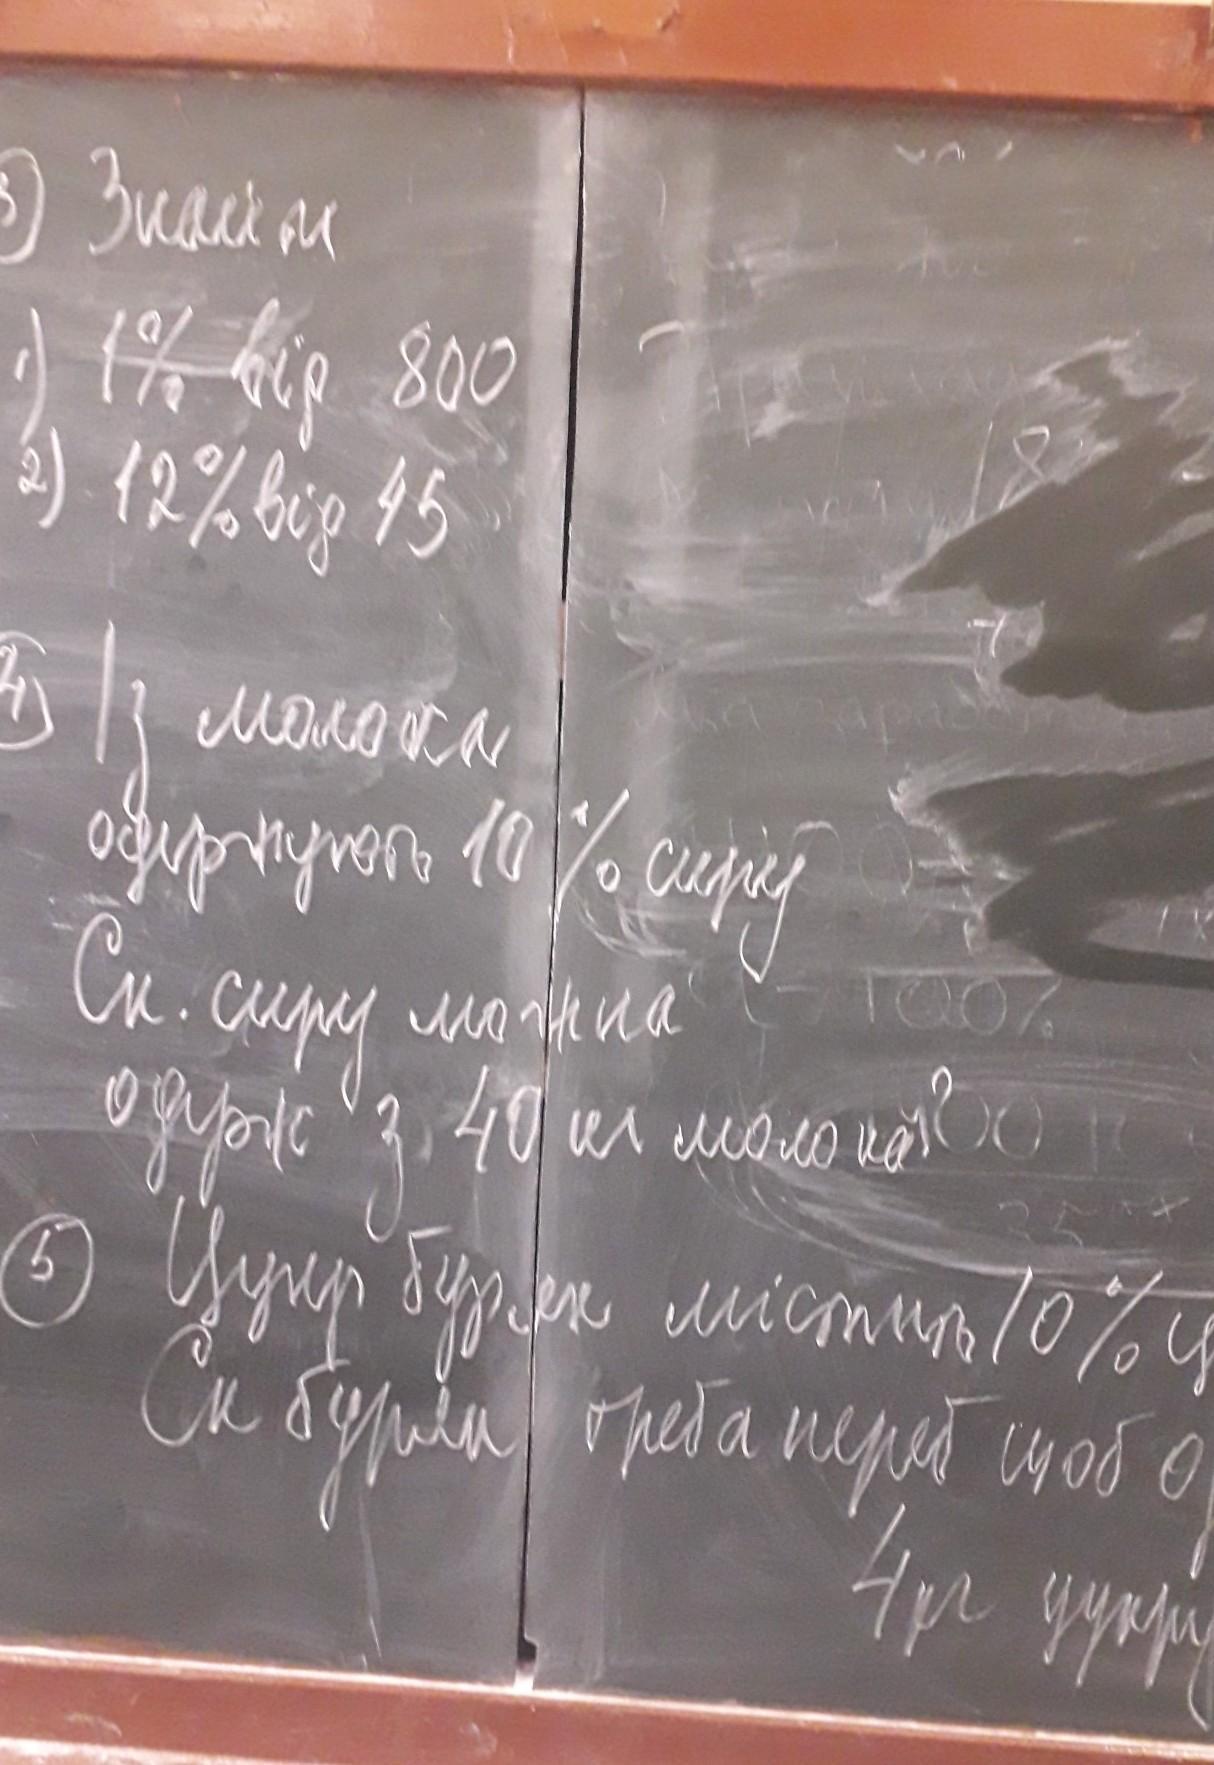 3) Знайти
1) 1% від 800
2) 12% від 45
4) Із молока
одержують 10% сиру
Ск. сиру можна
одерж з 40 кг молока?
5 Цукр буряк містить 10% ц
Ск буряк треба переб щоб о
4 кг цукру